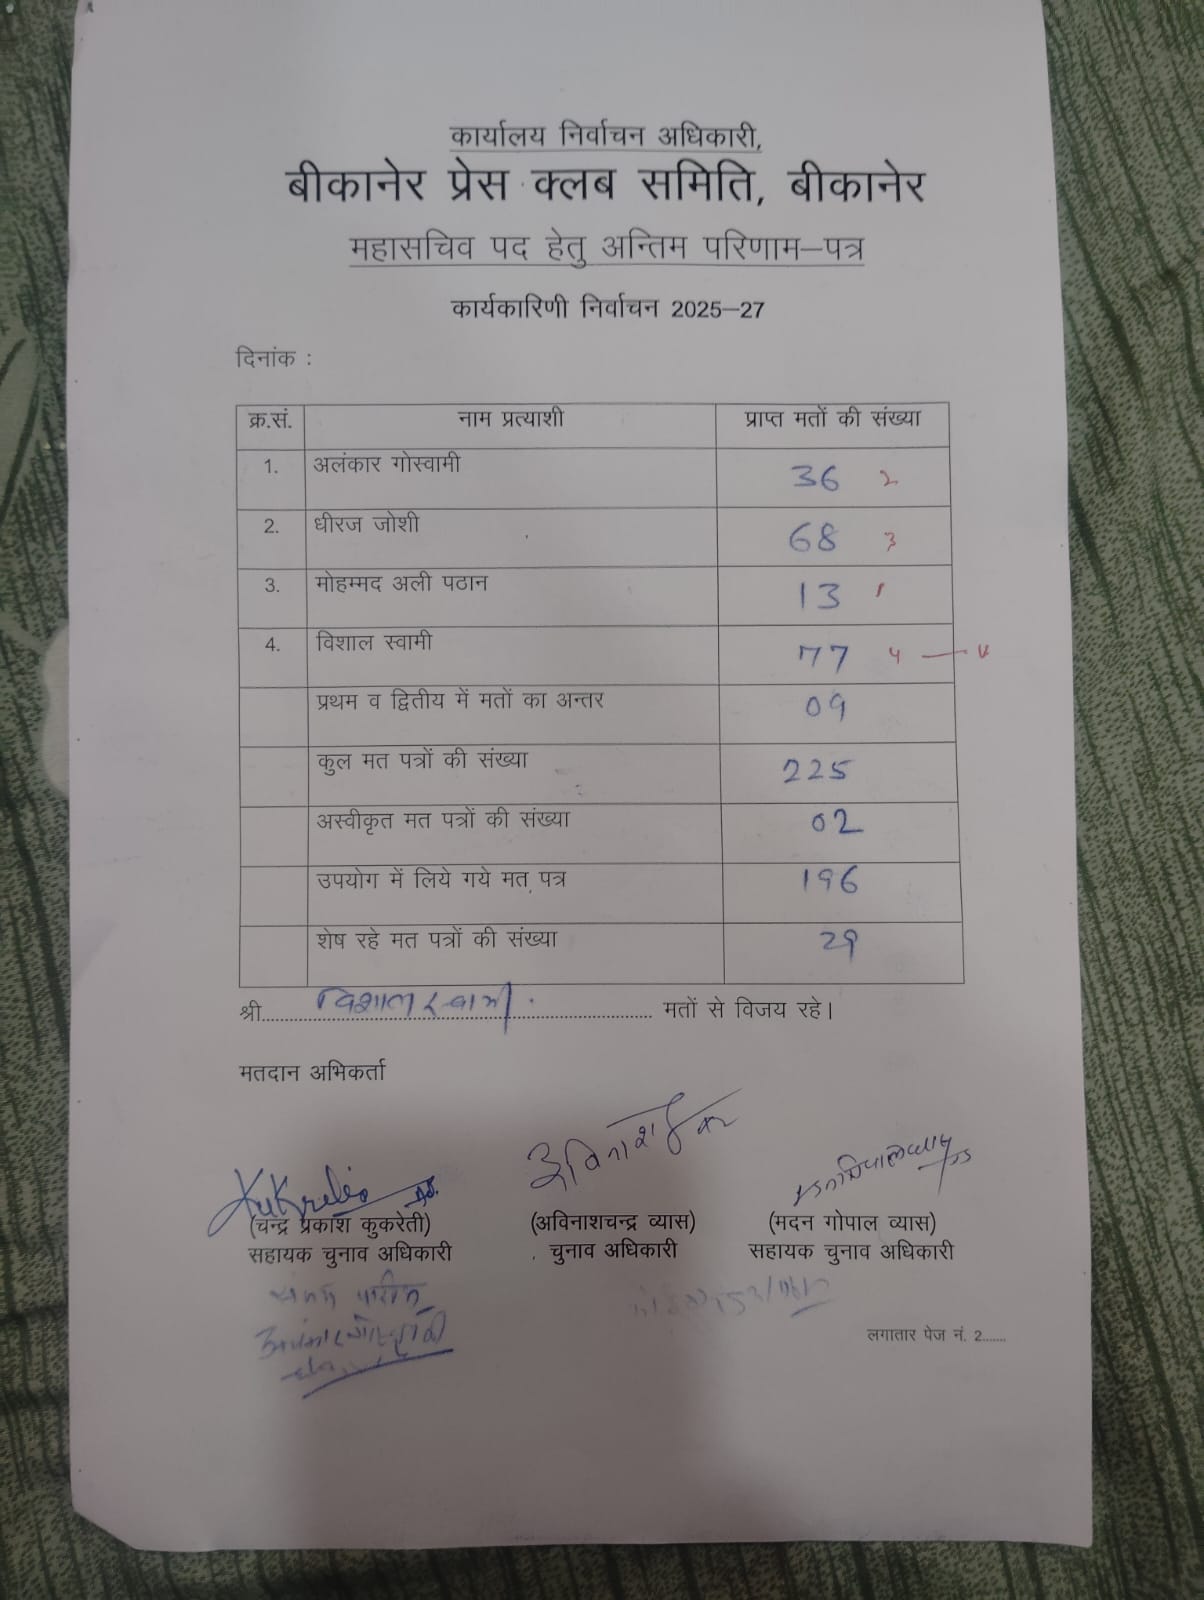 कार्यालय निर्वाचन अधिकारी,
बीकानेर प्रेस क्लब समिति, बीकानेर
महासचिव पद हेतु अन्तिम परिणाम–पत्र
कार्यकारिणी निर्वाचन 2025–27
दिनांक :
क्र.सं. नाम प्रत्याशी प्राप्त मतों की संख्या
1. अलंकार गोस्वामी 36 2
2. धीरज जोशी 68 3
3. मोहम्मद अली पठान 13 1
4. विशाल स्वामी 77 4
प्रथम व द्वितीय में मतों का अन्तर 09
कुल मत पत्रों की संख्या 225
अस्वीकृत मत पत्रों की संख्या 02
उपयोग में लिये गये मत पत्र 196
शेष रहे मत पत्रों की संख्या 29
श्री विशाल स्वामी मतों से विजय रहे।
मतदान अभिकर्ता
(चन्द्र प्रकाश कुकरेती) (अविनाशचन्द्र व्यास) (मदन गोपाल व्यास)
सहायक चुनाव अधिकारी चुनाव अधिकारी सहायक चुनाव अधिकारी
लगातार पेज नं. 2......